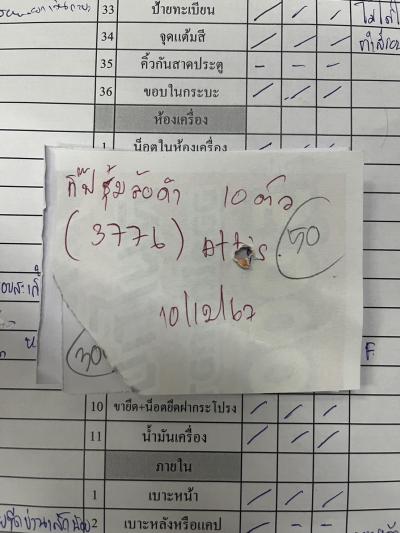 33 ป้ายทะเบียน
34 จุดแต้มสี
35 คิ้วกันสาดประตู
36 ขอบในกระบะ
ห้องเครื่อง
1 น็อตในห้องเครื่อง
กิ๊ฟซุ้มล้อดำ 10 ตัว
(3776) Attis 50
10/12/67
30
F
10 ขายึด+น็อตยึดฝากระโปรง
11 น้ำมันเครื่อง
ภายใน
1 เบาะหน้า
2 เบาะหลังหรือแคป